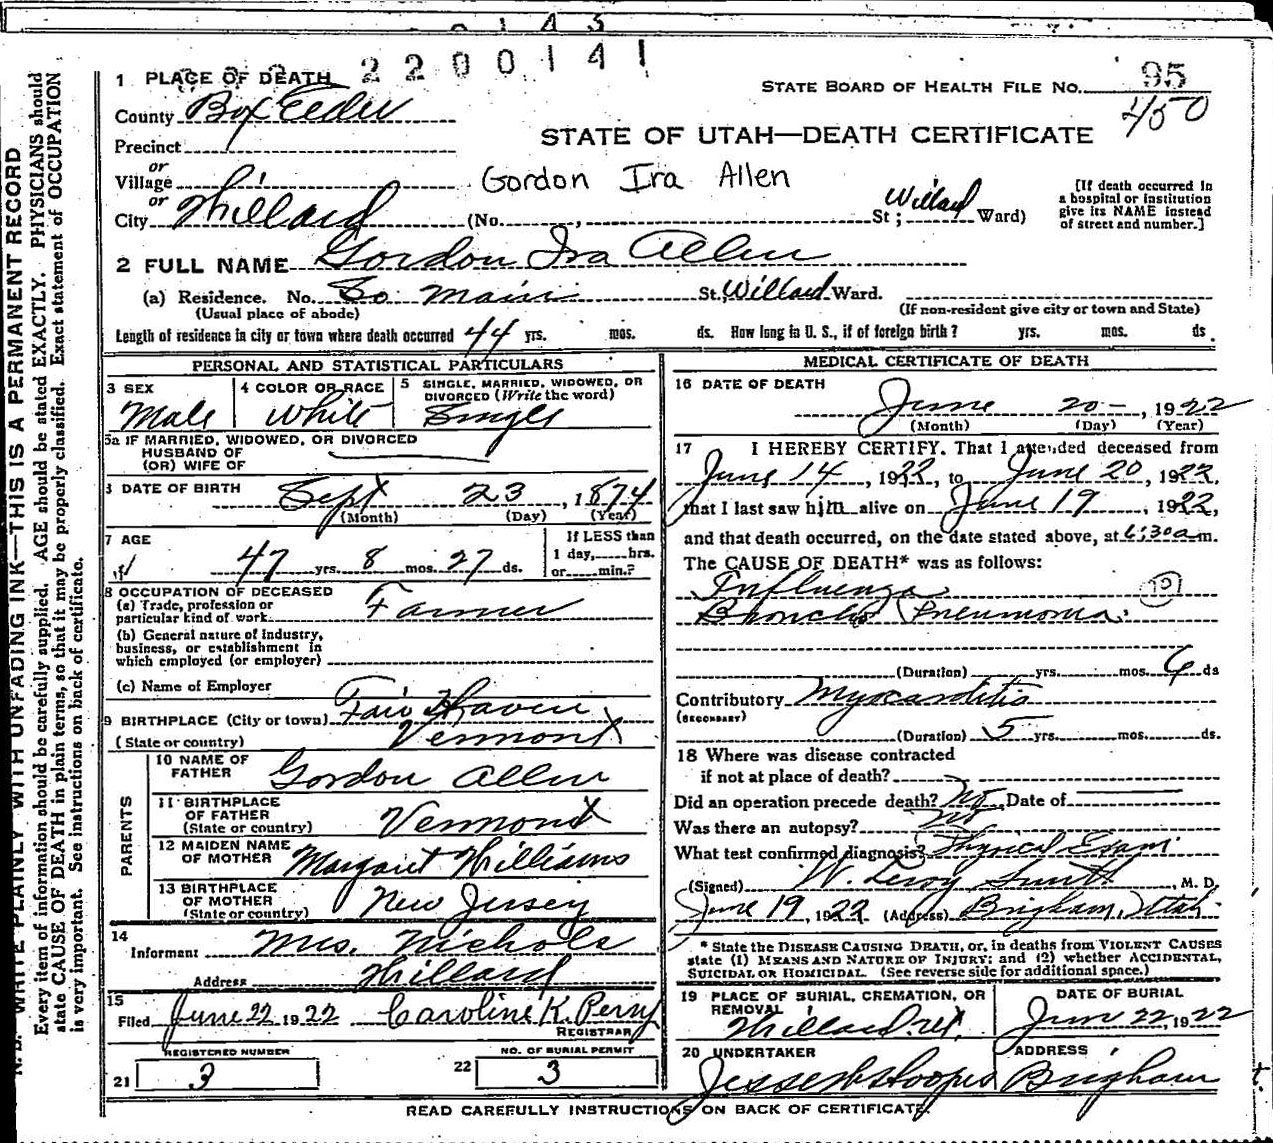 2200141
95
STATE BOARD OF HEALTH FILE NO.
450
1 PLACE OF DEATH
County Box Elder
STATE OF UTAH—DEATH CERTIFICATE
Precinct
or
Village
Gordon Ira Allen
or
City Willard (No. , St; Willard Ward)
[If death occurred in
a hospital or institution
give its NAME instead
of street and number.]
2 FULL NAME Gordon Ira Allen
(a) Residence. No. So. Main St, Willard Ward.
(Usual place of abode)
(If non-resident give city or town and State)
Length of residence in city or town where death occurred 44 yrs. mos. ds. How long in U. S., if of foreign birth? yrs. mos. ds.
PERSONAL AND STATISTICAL PARTICULARS
3 SEX
Male
4 COLOR OR RACE
White
5 SINGLE, MARRIED, WIDOWED, OR
DIVORCED (Write the word)
Single
5a IF MARRIED, WIDOWED, OR DIVORCED
HUSBAND OF
(OR) WIFE OF
DATE OF BIRTH Sept 23, 1874
(Month) (Day) (Year)
7 AGE
47 yrs. 8 mos. 27 ds.
If LESS than
1 day, hrs.
or min.?
8 OCCUPATION OF DECEASED
(a) Trade, profession or
particular kind of work Farmer
(b) General nature of Industry,
business, or establishment in
which employed (or employer)
(c) Name of Employer
9 BIRTHPLACE (City or town) Fair Haven
(State or country) Vermont
PARENTS
10 NAME OF
FATHER Gordon Allen
11 BIRTHPLACE
OF FATHER
(State or country) Vermont
12 MAIDEN NAME
OF MOTHER Margaret Williams
13 BIRTHPLACE
OF MOTHER
(State or country) New Jersey
14
Informent Mrs. Nichols
Address Willard
15
Filed June 22 1922 Caroline K. Perry
REGISTRAR
REGISTERED NUMBER
21 3
NO. OF BURIAL PERMIT
22 3
MEDICAL CERTIFICATE OF DEATH
16 DATE OF DEATH
June 20—, 1922
(Month) (Day) (Year)
17 I HEREBY CERTIFY. That I attended deceased from
June 14, 1922, to June 20, 1922,
that I last saw him alive on June 19, 1922,
and that death occurred, on the date stated above, at 6:30 a m.
The CAUSE OF DEATH* was as follows:
Influenza
Broncho Pneumonia
(Duration) yrs. mos. 6 ds
Contributory Myocarditis
(SECONDARY)
(Duration) 5 yrs. mos. ds.
18 Where was disease contracted
if not at place of death?
Did an operation precede death? No Date of
Was there an autopsy? No
What test confirmed diagnosis? Physical Exam.
(Signed) W. Leroy Smith, M. D.
June 19, 1922 (Address) Brigham, Utah
* State the DISEASE CAUSING DEATH, or, in deaths from VIOLENT CAUSES
state (1) MEANS AND NATURE OF INJURY; and (2) whether ACCIDENTAL,
SUICIDAL OR HOMICIDAL. (See reverse side for additional space.)
19 PLACE OF BURIAL, CREMATION, OR
REMOVAL
Willard
DATE OF BURIAL
June 22, 1922
20 UNDERTAKER
Jesse Hooper
ADDRESS
Brigham
READ CAREFULLY INSTRUCTIONS ON BACK OF CERTIFICATE.
WRITE PLAINLY WITH UNFADING INK—THIS IS A PERMANENT RECORD
Every item of information should be carefully supplied. AGE should be stated EXACTLY. PHYSICIANS should
state CAUSE OF DEATH in plain terms, so that it may be properly classified. Exact statement of OCCUPATION
is very important. See instructions on back of certificate.